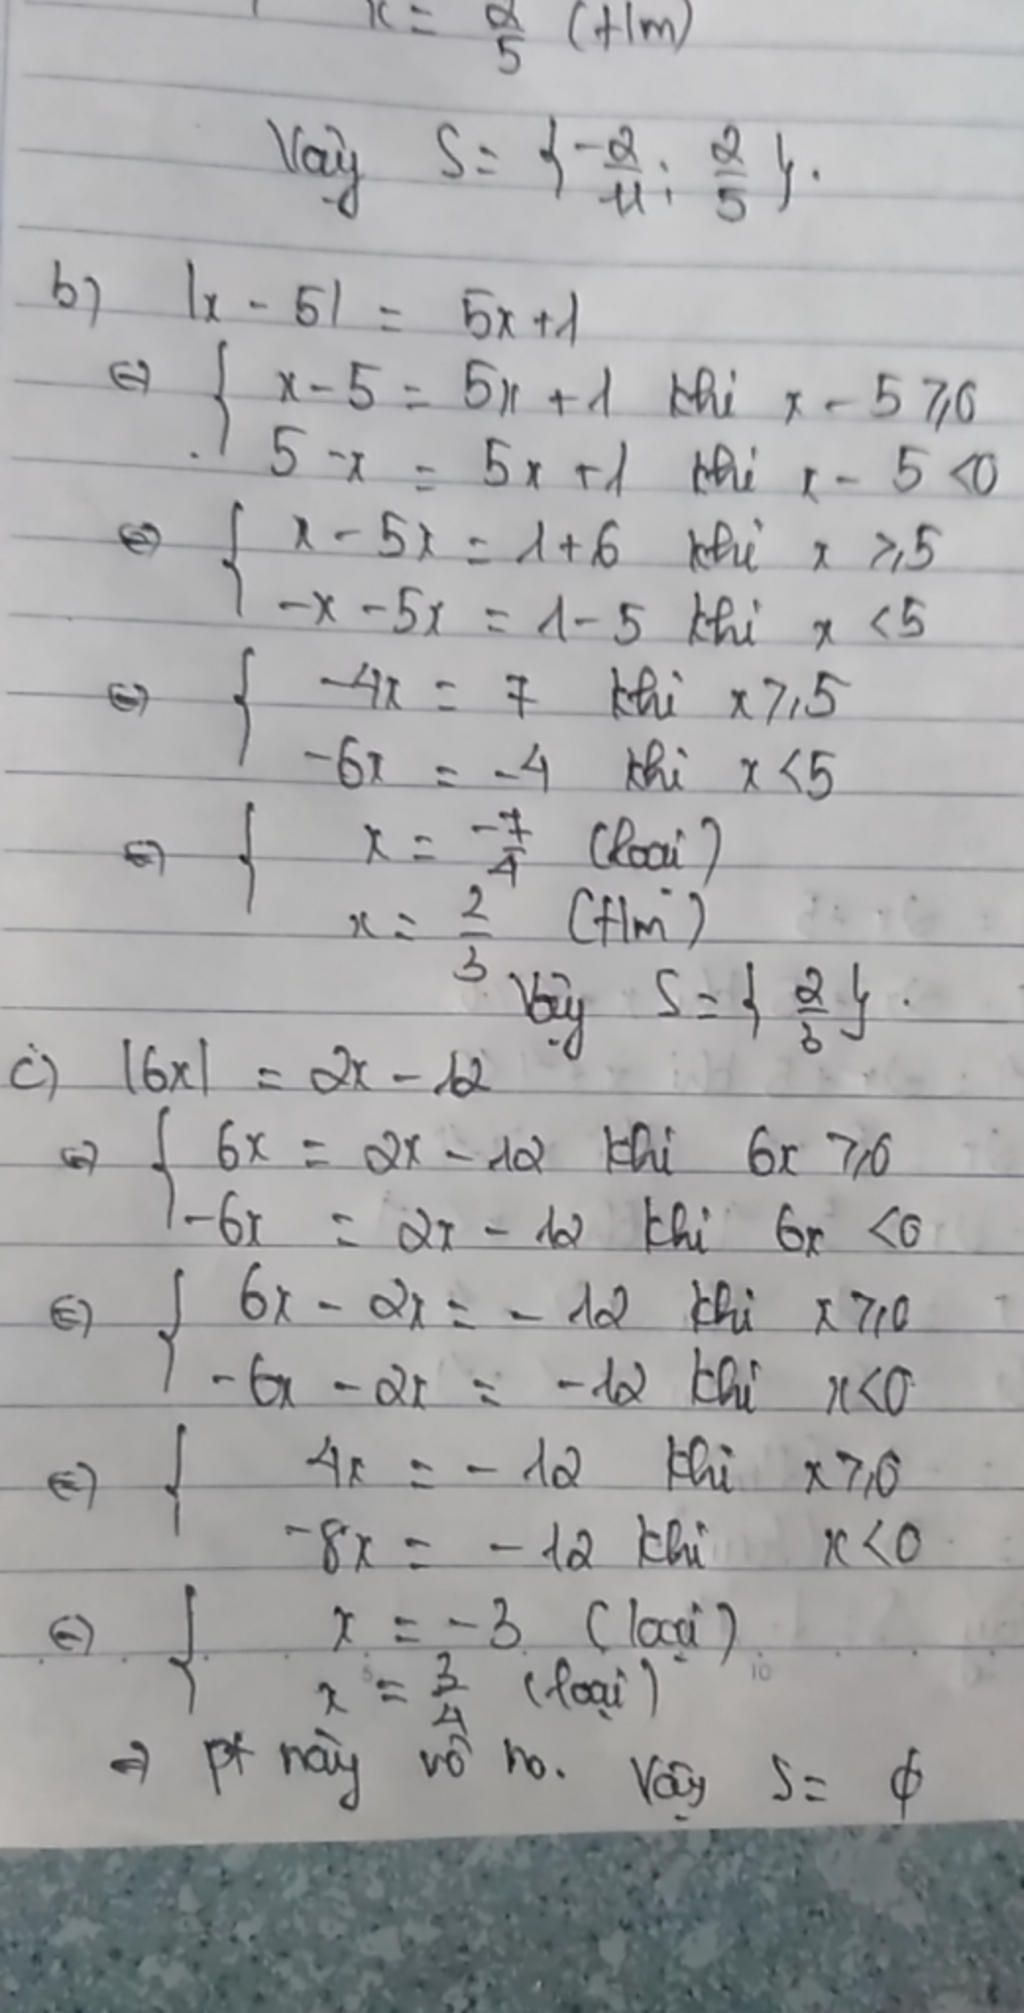 x = 2/5 (t/m)
Vậy S = { -2/11 ; 2/5 }.
b) |x - 5| = 5x + 1
⇔ { x - 5 = 5x + 1 khi x - 5 ≥ 0
5 - x = 5x + 1 khi x - 5 < 0
⇔ { x - 5x = 1 + 6 khi x ≥ 5
-x - 5x = 1 - 5 khi x < 5
⇔ { -4x = 7 khi x ≥ 5
-6x = -4 khi x < 5
⇔ { x = -7/4 (loại)
x = 2/3 (t/m)
Vậy S = { 2/3 }.
c) |6x| = 2x - 12
⇔ { 6x = 2x - 12 khi 6x ≥ 0
-6x = 2x - 12 khi 6x < 0
⇔ { 6x - 2x = -12 khi x ≥ 0
-6x - 2x = -12 khi x < 0
⇔ { 4x = -12 khi x ≥ 0
-8x = -12 khi x < 0
⇔ { x = -3 (loại)
x = 3/4 (loại)
⇒ pt này vô no. Vậy S = ∅